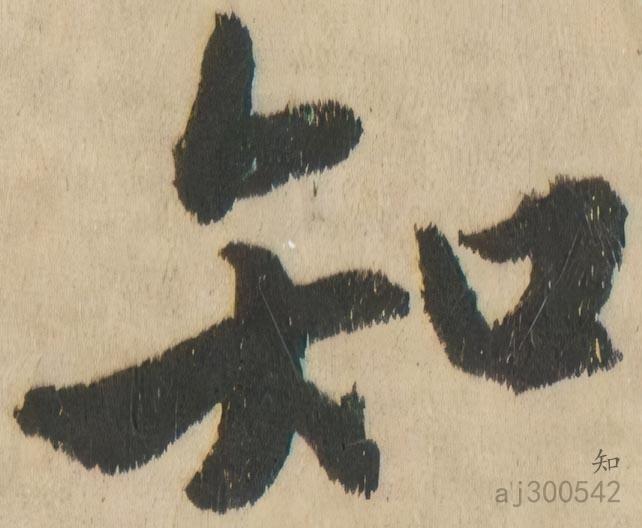 知
知
aj300542